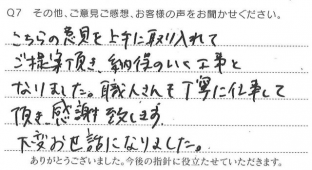 Q7 その他、ご意見ご感想、お客様の声をお聞かせください。
こちらの意見を上手に取り入れて
ご提案頂き、納得のいく工事と
なりました。職人さんも丁寧に仕事して
頂き感謝致します
大変お世話になりました。
ありがとうございました。今後の指針に役立たせていただきます。